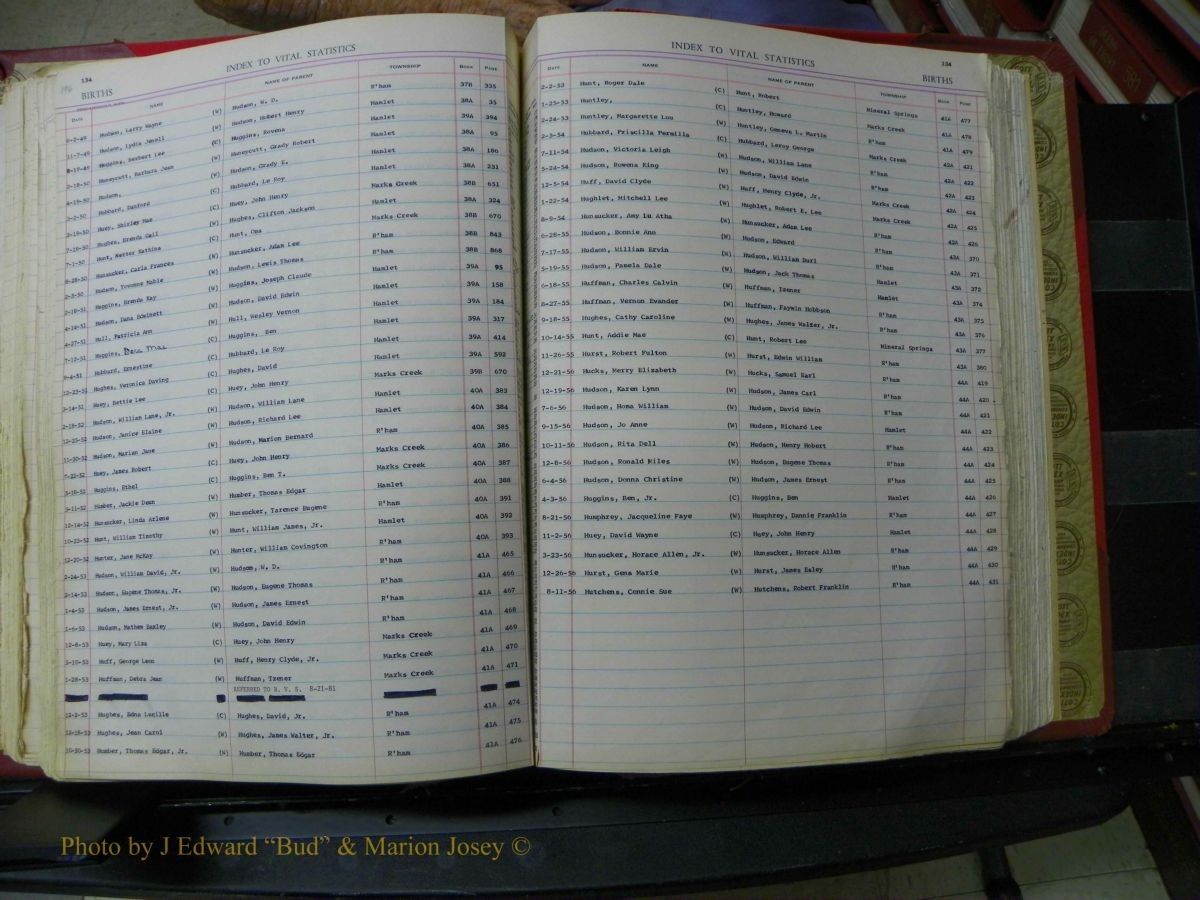 134 INDEX TO VITAL STATISTICS
BIRTHS
DATE NAME NAME OF PARENT TOWNSHIP BOOK PAGE
8-2-49 Hudson, Larry Wayne (W) Hudson, W. D. R'ham 37B 335
11-7-49 Hudson, Lydia Jenell (W) Hudson, Robert Henry Hamlet 38A 35
8-17-49 Huggins, Herbert Lee (C) Huggins, Rovena Hamlet 39A 394
2-18-50 Huneycutt, Barbara Jean (W) Huneycutt, Grady Robert Hamlet 38A 95
4-19-50 Hudson, (W) Hudson, Grady E. Hamlet 38A 186
3-2-50 Hubbard, Danford (C) Hubbard, Le Roy Hamlet 38A 231
2-19-50 Huey, Shirley Mae (C) Huey, John Henry Marks Creek 38B 651
7-18-50 Hughes, Brenda Gail (W) Hughes, Clifton Jackson Hamlet 38A 324
7-1-50 Hunt, Netter Kathina (C) Hunt, Ona Marks Creek 38B 670
8-28-50 Hunsucker, Carla Frances (W) Hunsucker, Adam Lee R'ham 38B 843
2-3-50 Hudson, Yovonne Mable (W) Hudson, Lewis Thomas R'ham 38B 868
2-18-51 Huggins, Brenda Kay (W) Huggins, Joseph Claude Hamlet 39A 95
4-14-51 Hudson, Dana Edwinett (W) Hudson, David Edwin Hamlet 39A 158
4-27-51 Hull, Patricia Ann (W) Hull, Wesley Vernon Hamlet 39A 184
7-12-51 Huggins, Mae (C) Huggins, Ben Hamlet 39A 317
9-4-51 Hubbard, Ernestine (C) Hubbard, Le Roy Hamlet 39A 414
12-23-51 Hughes, Veronica Daving (C) Hughes, David Hamlet 39A 592
3-14-51 Huey, Bettie Lee (C) Huey, John Henry Marks Creek 39B 670
2-18-52 Hudson, William Lane, Jr. (W) Hudson, William Lane Hamlet 40A 383
12-25-52 Hudson, Janice Elaine (W) Hudson, Richard Lee Hamlet 40A 384
11-20-52 Hudson, Marian Jane (W) Hudson, Marion Bernard R'ham 40A 385
7-22-52 Huey, James Robert (C) Huey, John Henry Marks Creek 40A 386
3-18-52 Huggins, Ethel (C) Huggins, Ben T. Marks Creek 40A 387
3-11-52 Humber, Jackie Dean (W) Humber, Thomas Edgar Hamlet 40A 388
12-14-52 Hunsucker, Linda Arlene (W) Hunsucker, Tarence Eugene R'ham 40A 391
10-23-52 Hunt, William Timothy (W) Hunt, William James, Jr. Hamlet 40A 392
12-20-52 Hunter, Jane McKay (W) Hunter, William Covington R'ham 40A 393
2-24-53 Hudson, William David, Jr. (W) Hudson, W. D. R'ham 41A 465
2-14-53 Hudson, Eugene Thomas, Jr. (W) Hudson, Eugene Thomas R'ham 41A 466
1-4-53 Hudson, James Ernest, Jr. (W) Hudson, James Ernest R'ham 41A 467
1-6-53 Hudson, Mathew Baxley (W) Hudson, David Edwin R'ham 41A 468
12-8-53 Huey, Mary Liza (C) Huey, John Henry Marks Creek 41A 469
3-10-53 Huff, George Leon (W) Huff, Henry Clyde, Jr. Marks Creek 41A 470
1-28-53 Huffman, Debra Jean (W) Huffman, Tzener Marks Creek 41A 471
REFERRED TO B. V. S. 8-21-81
12-2-53 Hughes, Edna Lucille (C) Hughes, David, Jr. R'ham 41A 474
12-18-53 Hughes, Jean Carol (W) Hughes, James Walter, Jr. R'ham 41A 475
10-30-53 Humber, Thomas Edgar, Jr. (W) Humber, Thomas Edgar R'ham 41A 476
INDEX TO VITAL STATISTICS 134
BIRTHS
DATE NAME NAME OF PARENT TOWNSHIP BOOK PAGE
2-2-53 Hunt, Roger Dale (C) Hunt, Robert Mineral Springs 41A 477
1-25-53 Huntley, (C) Huntley, Howard Marks Creek 41A 478
2-24-53 Huntley, Margarette Lou (W) Huntley, Geneve L. Martin R'ham 41A 479
2-3-54 Hubbard, Priscilla Permilla (C) Hubbard, Leroy George Marks Creek
7-11-54 Hudson, Victoria Leigh (W) Hudson, William Lane R'ham 42A 422
5-24-54 Hudson, Rowena King (W) Hudson, David Edwin R'ham 42A 423
12-5-54 Huff, David Clyde (W) Huff, Henry Clyde, Jr. Marks Creek 42A 424
1-22-54 Hughlet, Mitchell Lee (W) Hughlet, Robert E. Lee Marks Creek 42A 425
8-9-54 Hunsucker, Amy Lu Atha (W) Hunsucker, Adam Lee R'ham 42A 426
6-28-55 Hudson, Bonnie Ann (W) Hudson, Edward R'ham 43A 370
7-17-55 Hudson, William Ervin (W) Hudson, William Burl R'ham 43A 371
5-19-55 Hudson, Pamela Dale (W) Hudson, Jack Thomas Hamlet 43A 372
6-18-55 Huffman, Charles Calvin (W) Huffman, Tzener Hamlet 43A 374
8-27-55 Huffman, Vernon Evander (W) Huffman, Faywin Hobbson R'ham 43A 375
9-18-55 Hughes, Cathy Caroline (W) Hughes, James Walter, Jr. R'ham 43A 376
10-14-55 Hunt, Addie Mae (C) Hunt, Robert Lee Mineral Springs 43A 377
11-26-55 Hurst, Robert Fulton (W) Hurst, Edwin William R'ham 43A 380
12-21-56 Hucks, Mary Elizabeth (W) Hucks, Samuel Karl R'ham 44A 419
12-19-56 Hudson, Karen Lynn (W) Hudson, James Carl R'ham 44A 420
7-6-56 Hudson, Homa William (W) Hudson, David Edwin R'ham 44A 421
9-15-56 Hudson, Jo Anne (W) Hudson, Richard Lee Hamlet 44A 422
10-11-56 Hudson, Rita Dell (W) Hudson, Henry Hobert R'ham 44A 423
12-8-56 Hudson, Ronald Miles (W) Hudson, Eugene Thomas R'ham 44A 424
6-4-56 Hudson, Donna Christine (W) Hudson, James Ernest R'ham 44A 425
4-3-56 Huggins, Ben, Jr. (C) Huggins, Ben Hamlet 44A 426
8-21-56 Humphrey, Jacqueline Faye (W) Humphrey, Dannie Franklin R'ham 44A 427
11-2-56 Huey, David Wayne (C) Huey, John Henry Hamlet 44A 428
3-23-56 Hunsucker, Horace Allen, Jr. (W) Hunsucker, Horace Allen R'ham 44A 429
12-26-56 Hurst, Gena Marie (W) Hurst, James Ealey R'ham 44A 430
8-11-56 Hutchens, Connie Sue (W) Hutchens, Robert Franklin R'ham 44A 431
Photo by J Edward “Bud” & Marion Josey ©